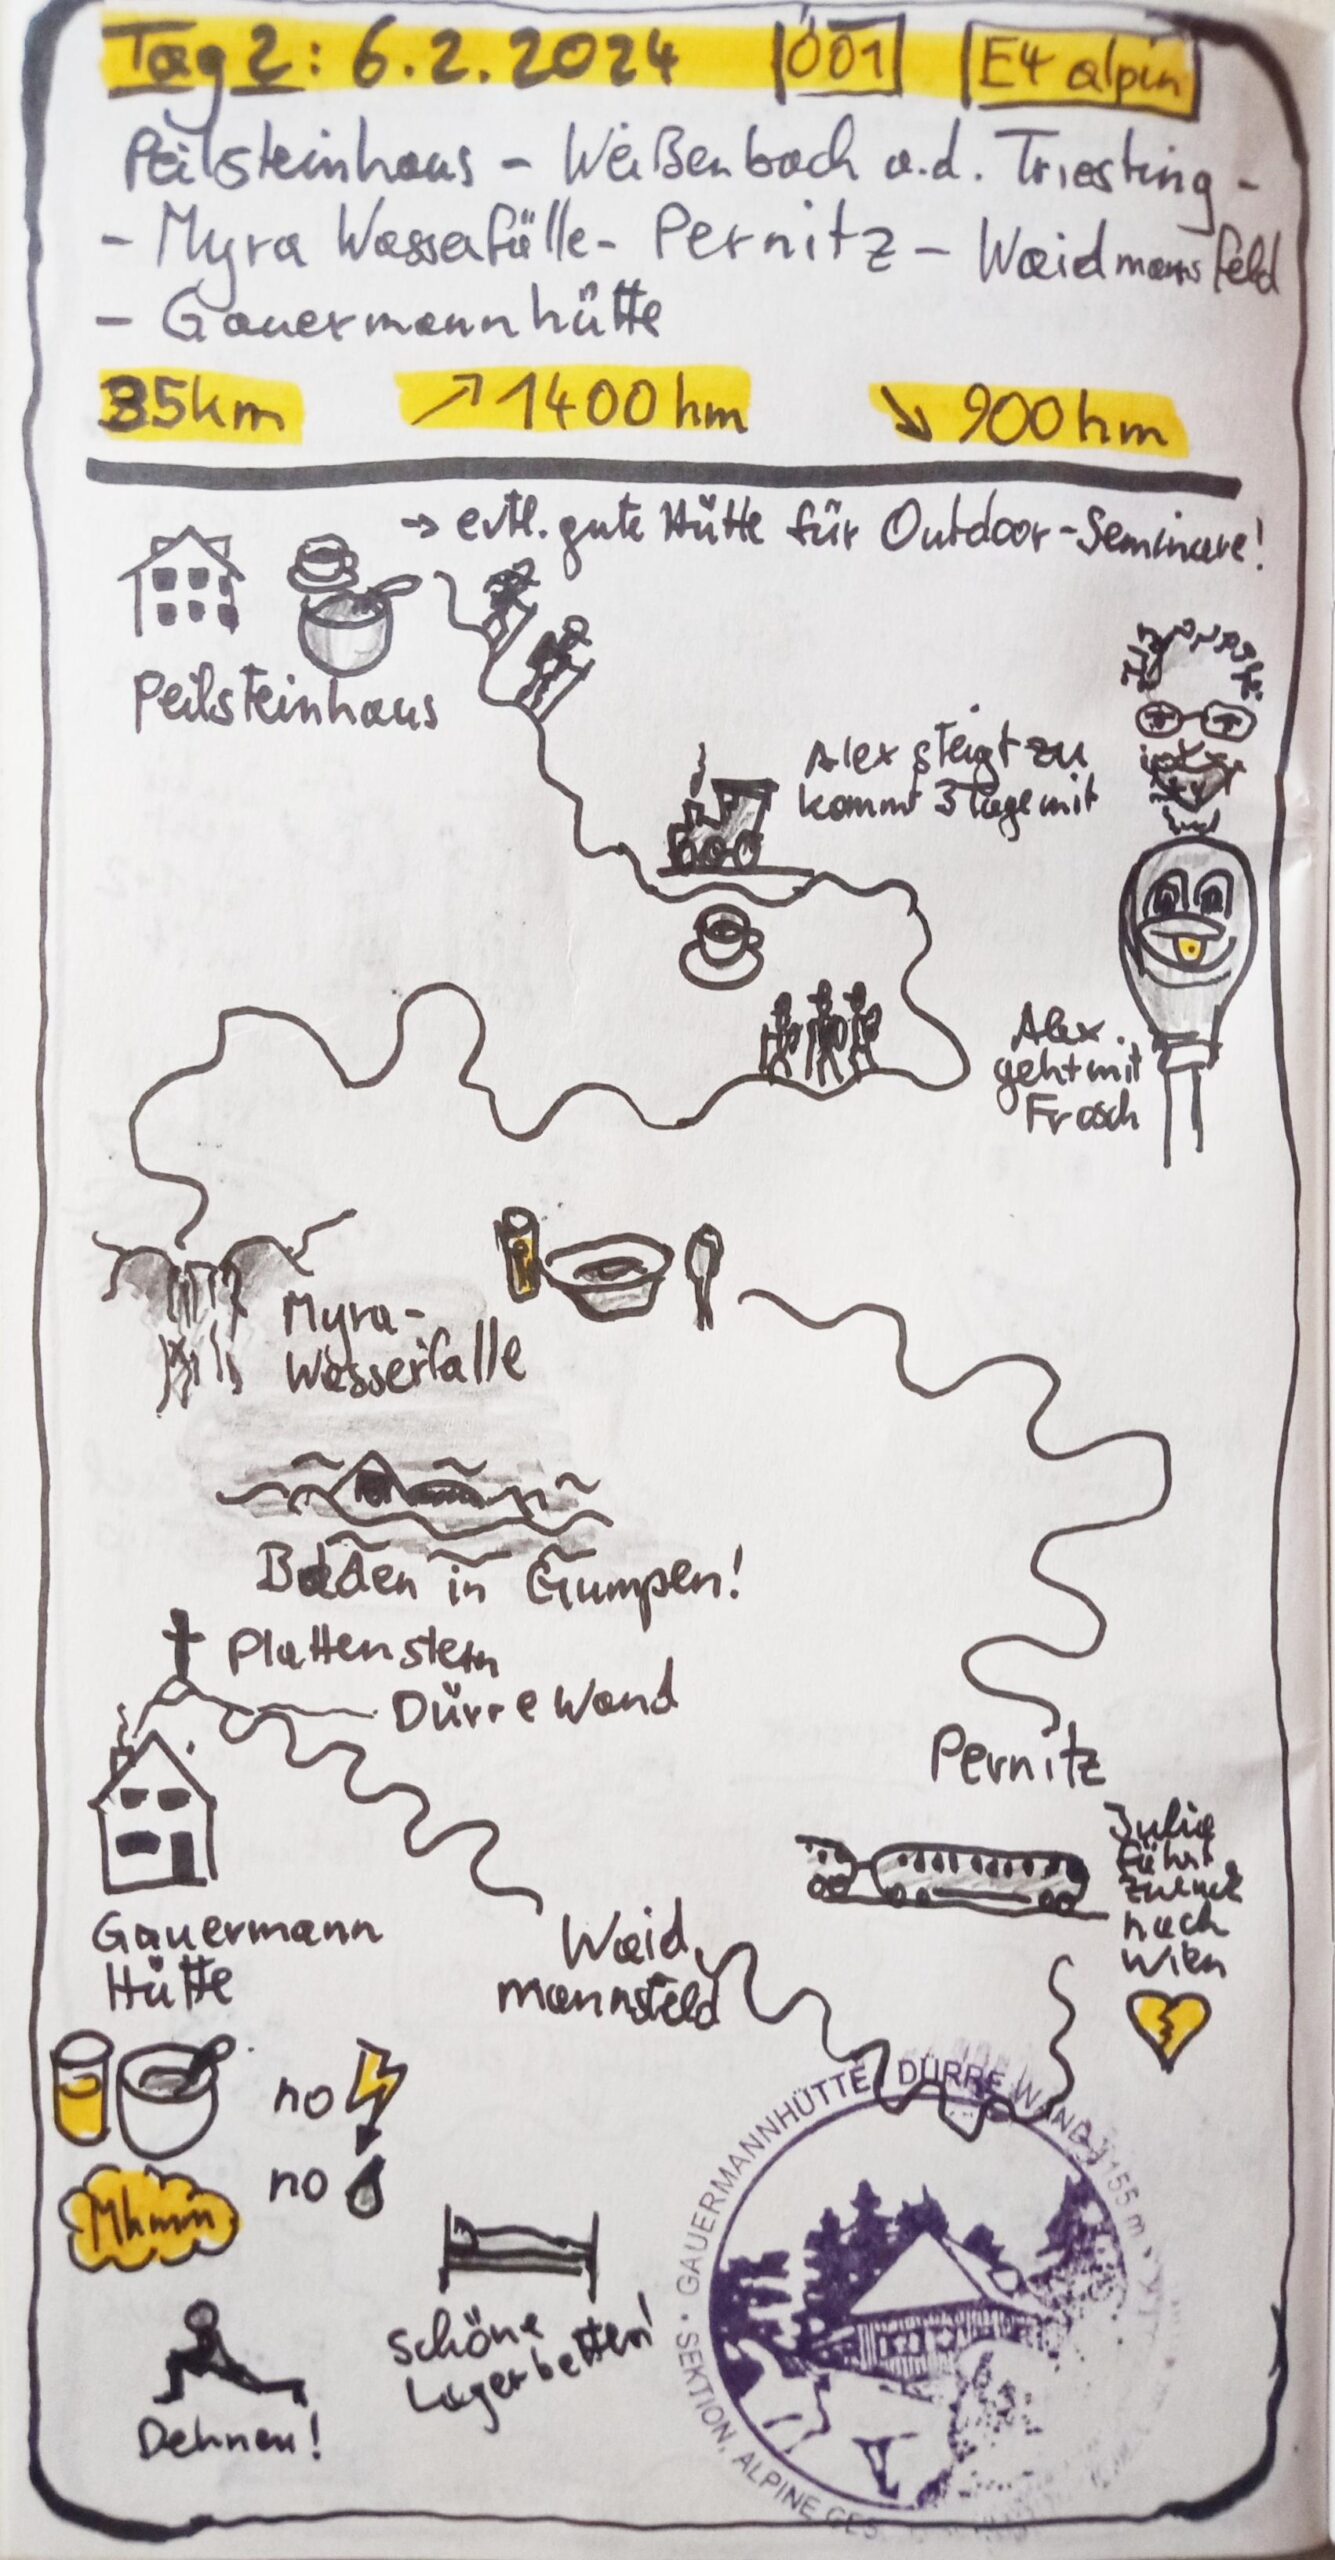 Tag 2: 6.2.2024 Ö01 E4 alpin
Peilsteinhaus - Weißenbach a.d. Triesting -
- Myra Wasserfälle - Pernitz - Waidmannsfeld
- Gauermannhütte
35km ↗1400hm ↘900hm
→ evtl. gute Hütte für Outdoor-Seminare!
Peilsteinhaus
Alex steigt zu
kommt 3 Tage mit
Alex
geht mit
Frosch
Myra-
Wasserfälle
Baden in Gumpen!
Plattenstein
Dürre Wand
Pernitz
Julia
fährt
zurück
nach
Wien
Gauermann
Hütte
Waid
mannsfeld
no
no
Mhmm
schöne
Lagerbetten!
Dehnen!
GAUERMANNHÜTTE, DÜRRE WAND 1155 m
• SEKTION, ALPINE GES.